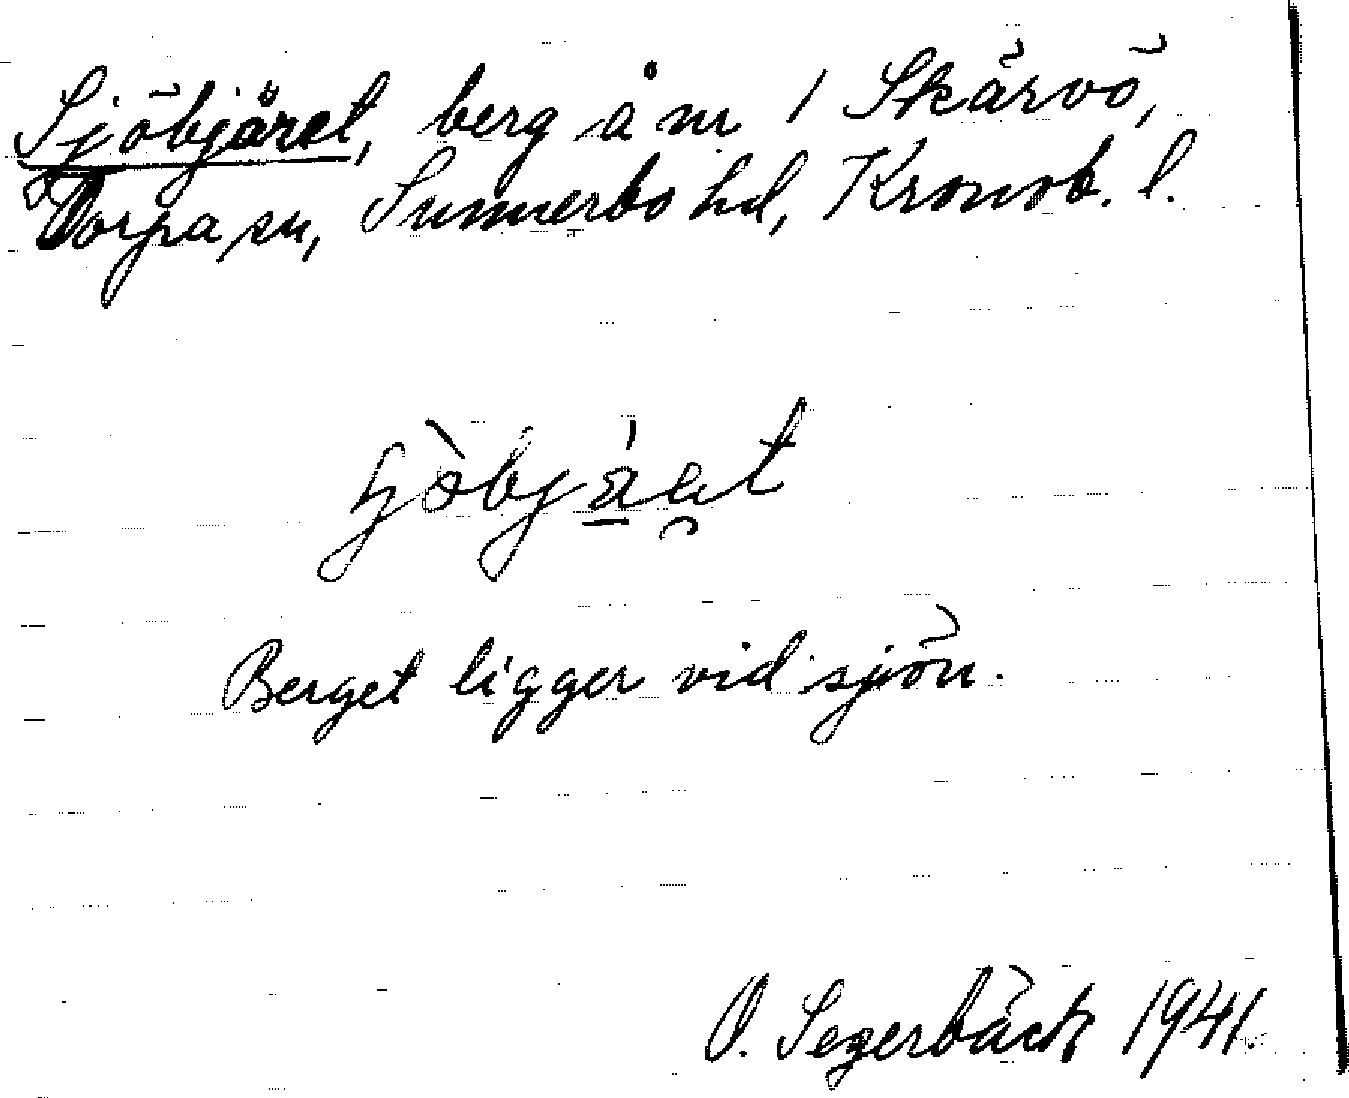 Sjöbjäret, berg å nr 1 Skärvö,
Torpa sn, Sunnerbo hd, Kronob. l.
Berget ligger vid sjön.
O. Segerbäck 1941.